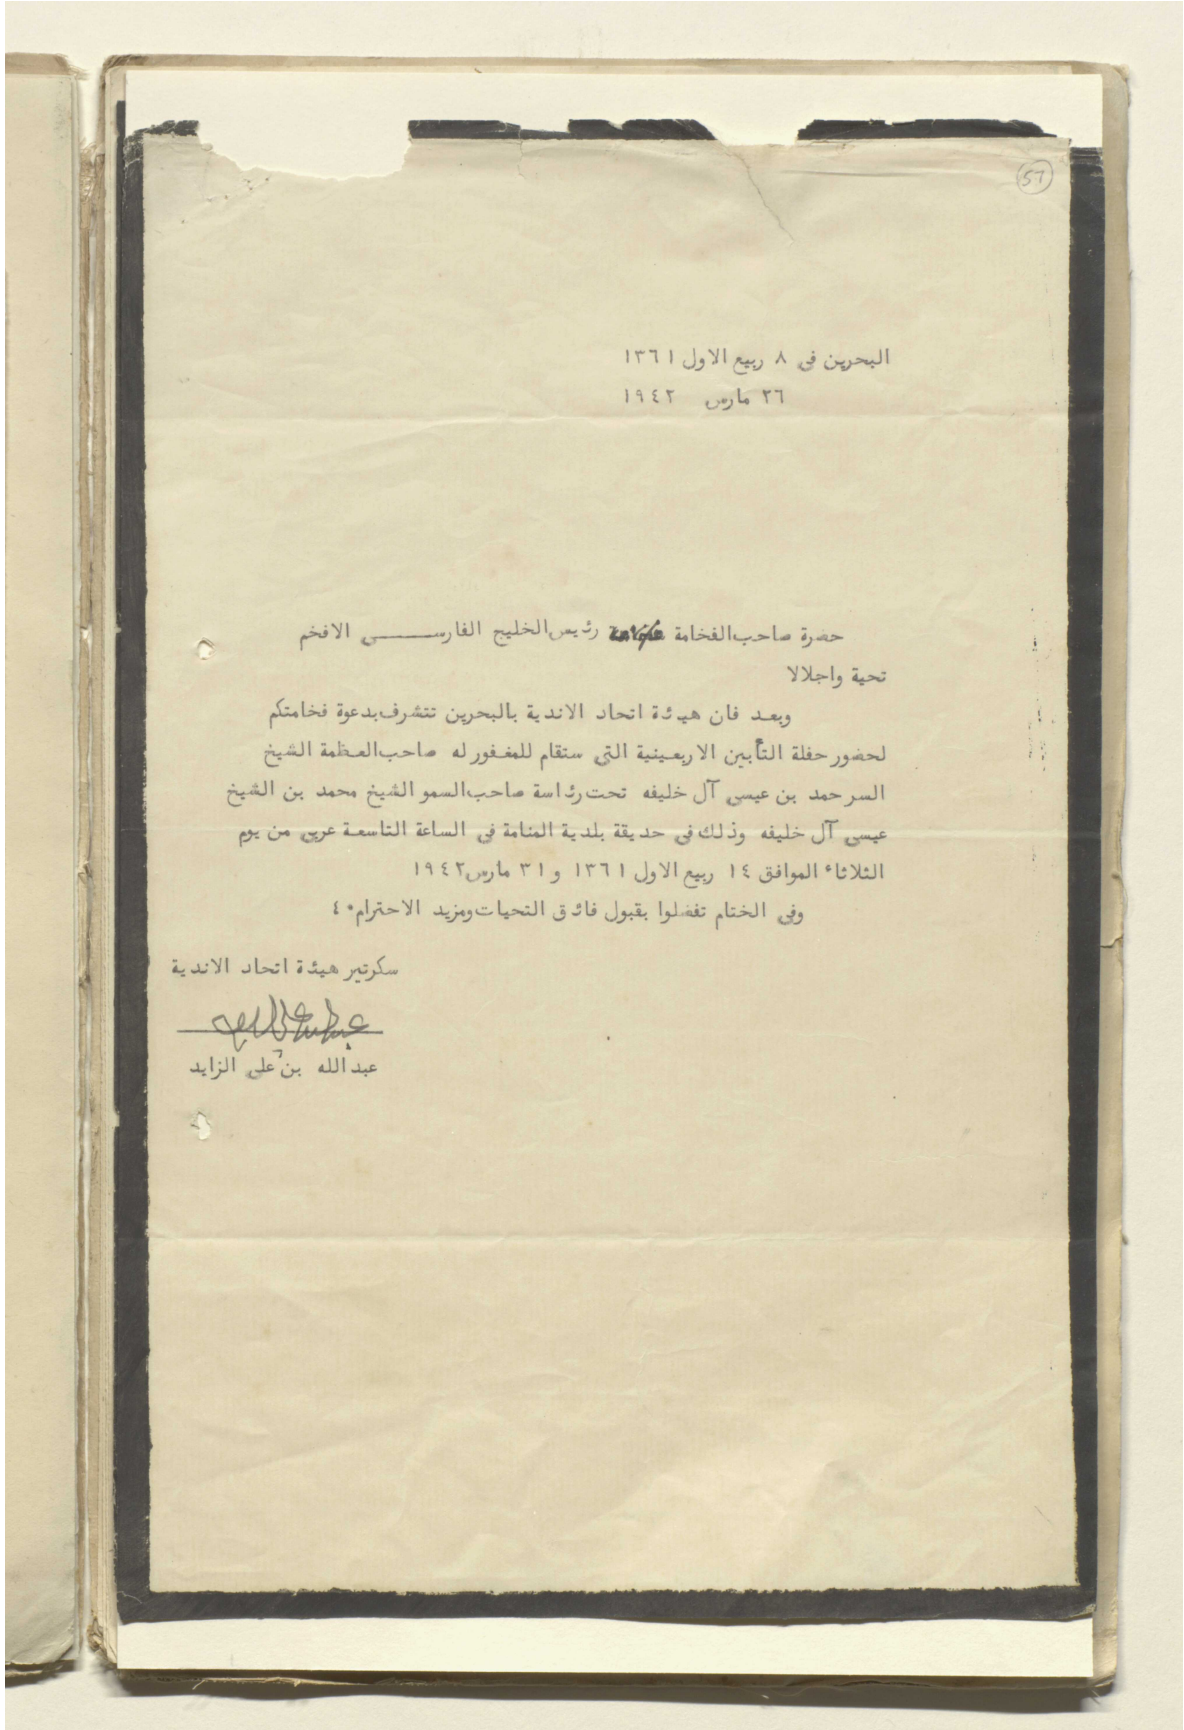 57
البحرين في ٨ ربيع الاول ١٣٦١
٢٦ مارس ١٩٤٢
حضرة صاحب الفخامة رئيس الخليج الفارسي الافخم
تحية واجلالا
وبعد فان هيئة اتحاد الاندية بالبحرين تتشرف بدعوة فخامتكم
لحضور حفلة التأبين الاربعينية التي ستقام للمغفور له صاحب العظمة الشيخ
السر حمد بن عيسى آل خليفه تحت رئاسة صاحب السمو الشيخ محمد بن الشيخ
عيسى آل خليفه وذلك في حديقة بلدية المنامة في الساعة التاسعة عربي من يوم
الثلاثاء الموافق ١٤ ربيع الاول ١٣٦١ و ٣١ مارس ١٩٤٢
وفي الختام تفضلوا بقبول فائق التحيات ومزيد الاحترام٠ ٤
سكرتير هيئة اتحاد الاندية
عبد الله بن علي الزايد